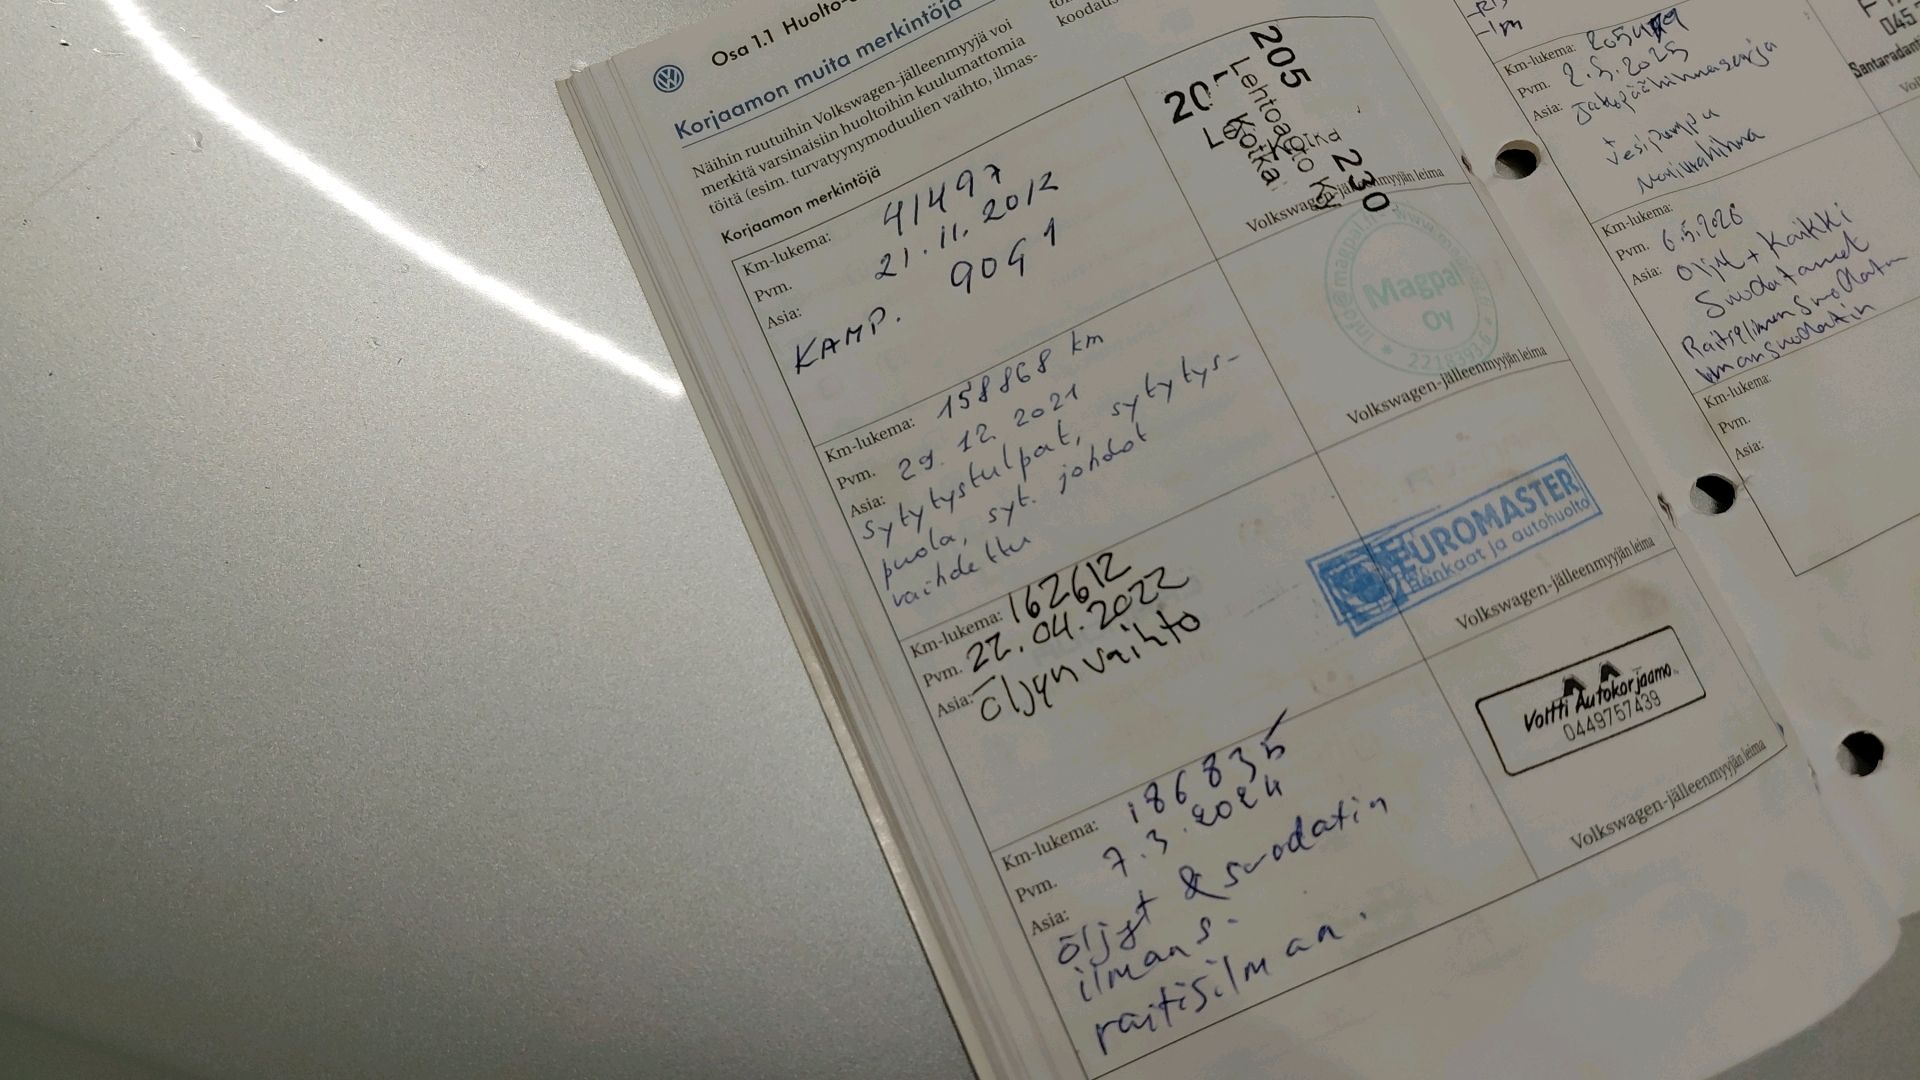 Osa 1.1 Huolto-
Korjaamon muita merkintöjä
Näihin ruutuihin Volkswagen-jälleenmyyjä voi
merkitä varsinaisiin huoltoihin kuulumattomia
töitä (esim. turvatyynymoduulien vaihto, ilmas-
koodaus
Korjaamon merkintöjä
Km-lukema: 41497
Pvm. 21.11.2012
Asia: 9041
KAMP.
205 230
Lehtoauto Ky
Kotka
Volkswagen-jälleenmyyjän leima
Km-lukema: 158868 km
Pvm. 29.12.2021
Asia: sytytystulpat, sytytys-
puola, syt. johdot
vaihdettu
info@magpal.
Magpal
Oy
2218393-4
Volkswagen-jälleenmyyjän leima
Km-lukema: 162612
Pvm. 22.04.2022
Asia: öljyn vaihto
EUROMASTER
Renkaat ja autohuolto
Volkswagen-jälleenmyyjän leima
Km-lukema: 186835
Pvm. 7.3.2024
Asia: öljyt & suodatin
ilmans.
raitisilman.
Voltti Autokorjaamo
0449757439
Volkswagen-jälleenmyyjän leima
Km-lukema:
Pvm. 2.5.2025
Asia: Jakopäähihnasarja
+
Vesipumppu
045
Santaradanti
Km-lukema:
Pvm. 6.5.2026
Asia: Öljyt + Kaikki
Suodatimet
Raitisilman Suodatin
ilmansuodatin
Km-lukema:
Pvm.
Asia: